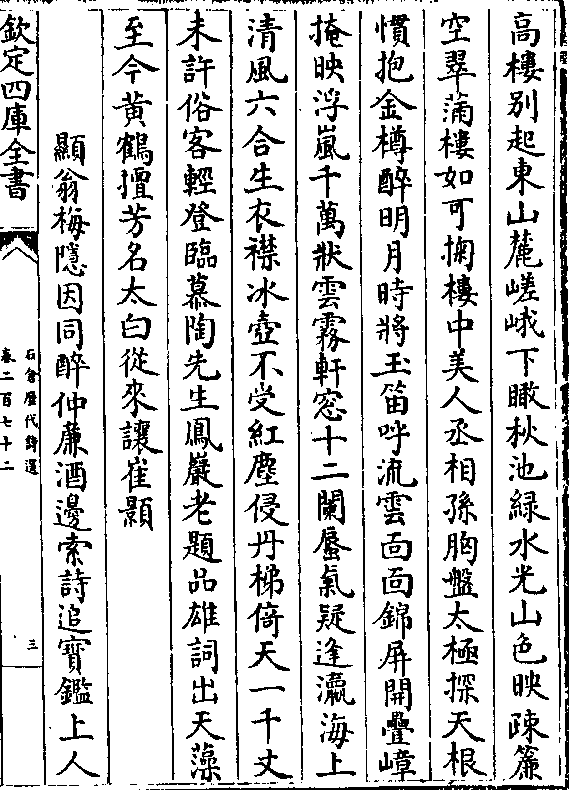 高樓别起東山麓嵯峨下瞰秋池緑水光山色映疎簾
空翠滿樓如可掬樓中美人丞相孫胸盤太極探天根
慣抱金樽醉明月時將玉笛呼流雲面面錦屏開疊嶂
掩映浮嵐千萬狀雲霧軒窓十二闌蜃氣疑逢瀛海上
清風六合生衣襟冰壺不受紅塵侵丹梯倚天一千丈
未許俗客輕登臨慕陶先生鳳巖老題品雄詞出天藻
至今黄鶴擅芳名太白從來讓崔顥
顯翁梅隱因同醉仲蔗酒邊索詩追寳鑑上人
欽定四庫全書
石倉歴代詩選
卷二百七十二
三